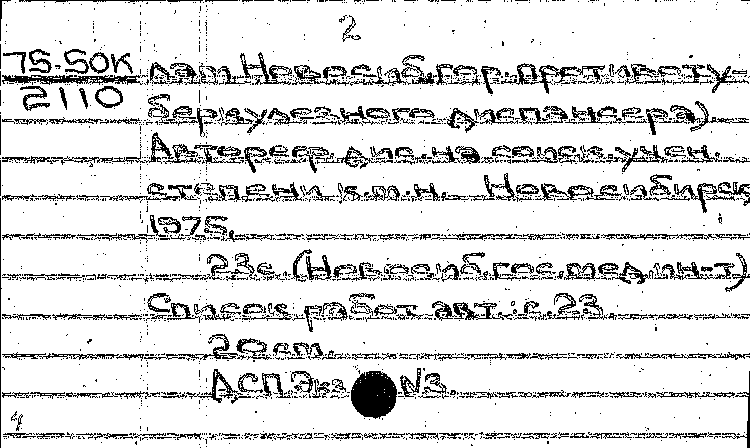 2
75-50К
2110
дат. Новосиб. гор. противоту-
беркулезного диспансера).
Автореф. дис. на соиск. учен.
степени к.м.н. Новосибирск
1975.
23с. (Новосиб. гос. мед. ин-т)
Список работ авт.: с. 23.
20 см.
ДСП. Экз №3.